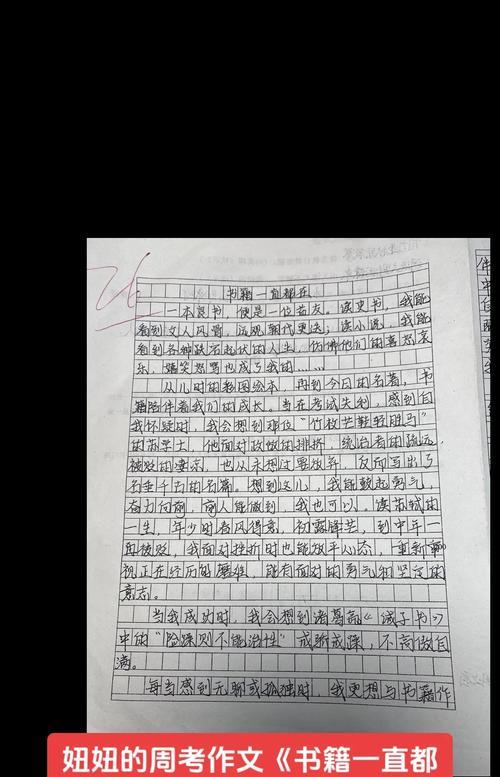 书籍一直都在
一本良书，便是一位益友。读史书，我能
看到文人风骨，纵观朝代更迭；读小说，我能
看到各种跌宕起伏的人生，仿佛他们的喜怒哀
乐，嬉笑怒骂也成了我的……
从儿时的彩图绘本，再到今日的名著，书
籍陪伴着我们的成长。当在考试失利，感到自
我怀疑时，我会想到那位“竹杖芒鞋轻胜马”
的苏学士，他面对政敌的排挤，统治者的疏远
被贬的凄凉，也从未想过要放弃，反而写出了
名垂千古的名篇。想到这儿，我能鼓起勇气，
奋力向前，商人能做到，我也可以，读苏轼的
一生，年少时春风得意，初露锋芒，到中年一
再被贬，我面对挫折时也能放平心态，重新审
视正在经历的磨难，能有面对的勇气和坚定的
意志。
当我成功时，我会想到诸葛亮《诫子书》
中的“险躁则不能治性”戒骄戒躁，不高傲自
满。
每当感到无聊或孤独时，我更想与书籍作
妞妞的周考作文《书籍一直都